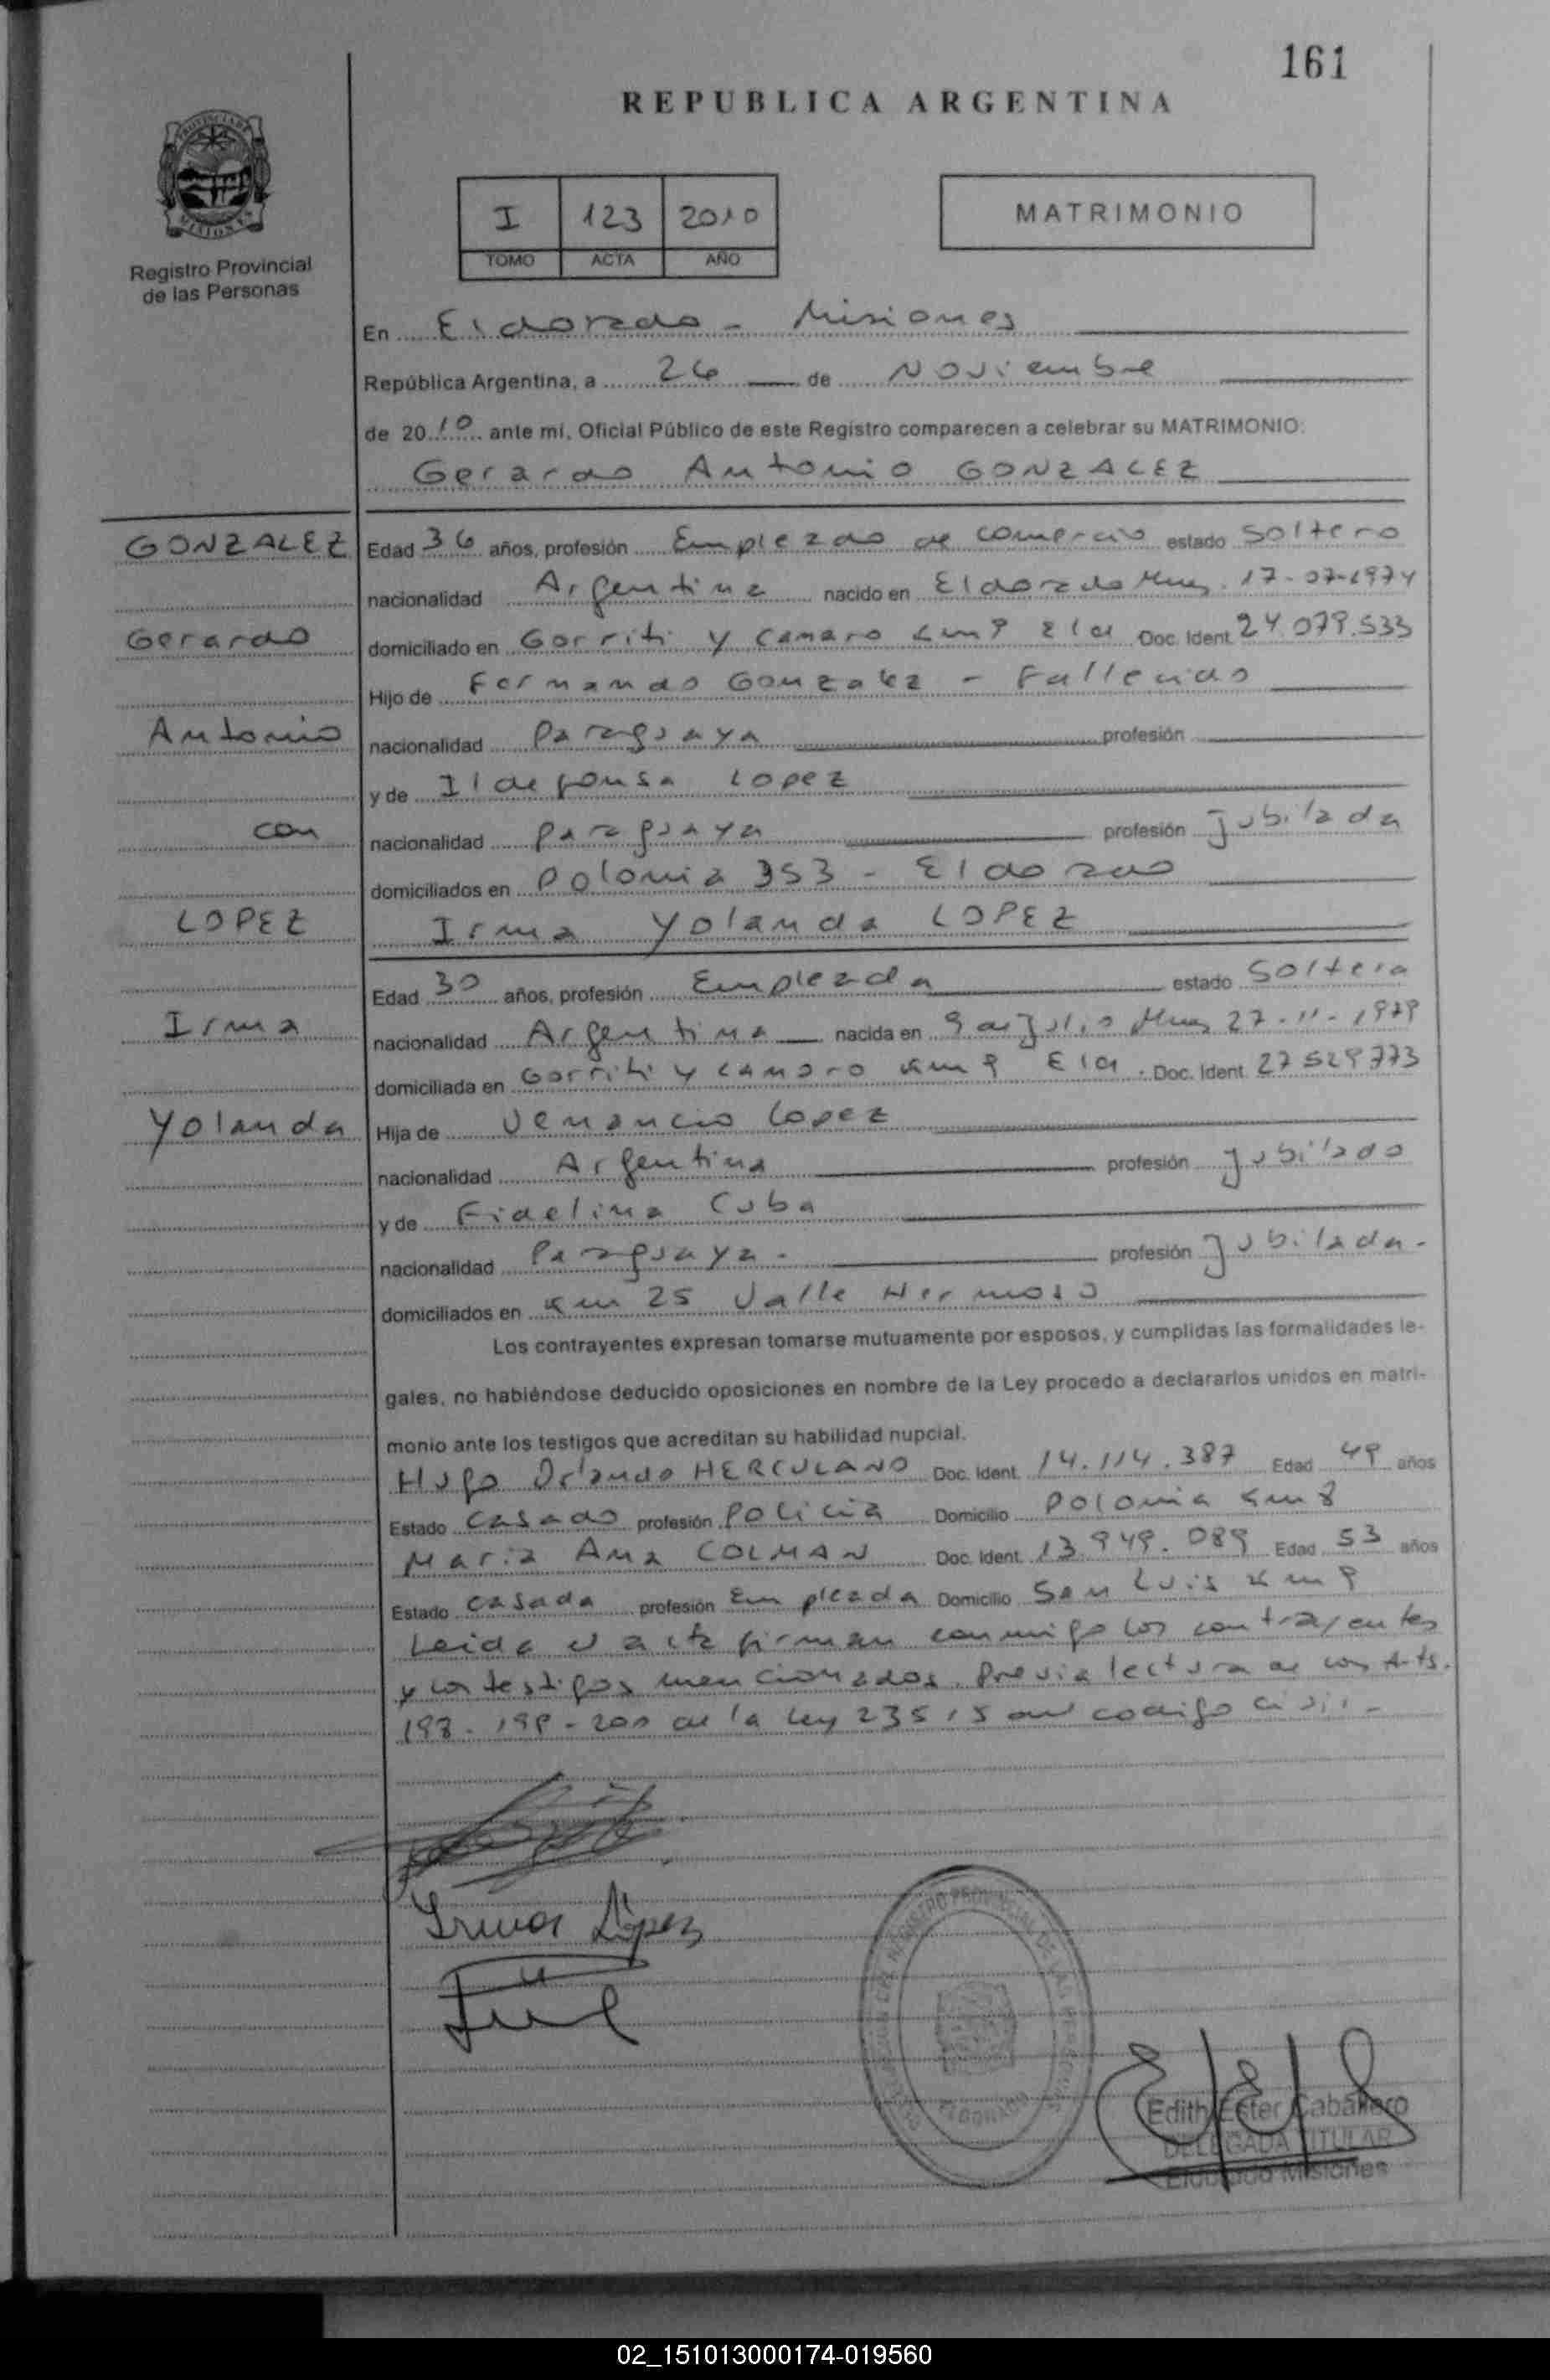 161
REPUBLICA ARGENTINA
PROVINCIA DE
MISIONES
Registro Provincial
de las Personas
I 123 2010
TOMO ACTA AÑO
MATRIMONIO
En Eldorado - Misiones
República Argentina, a 26 de Noviembre
de 2010 ante mí, Oficial Público de este Registro comparecen a celebrar su MATRIMONIO:
Gerardo Antonio GONZALEZ
GONZALEZ
Gerardo
Antonio
con
LOPEZ
Irma
Yolanda
Edad 36 años, profesión Empleado de comercio estado soltero
nacionalidad Argentina nacido en Eldorado Mnes. 17-07-1974
domiciliado en Gorriti y Camaro km 9 Eld Doc. Ident. 24.079.533
Hijo de Fernando Gonzalez - Fallecido
nacionalidad Paraguaya profesión
y de Ildefonsa Lopez
nacionalidad Paraguaya profesión Jubilada
domiciliados en Polonia 353 - Eldorado
Irma Yolanda LOPEZ
Edad 30 años, profesión Empleada estado Soltera
nacionalidad Argentina nacida en 9 de Julio Mnes 27-11-1979
domiciliada en Gorriti y Camaro km 9 Eld. Doc. Ident. 27529773
Hija de Venancio Lopez
nacionalidad Argentina profesión Jubilado
y de Fidelina Cuba
nacionalidad Paraguaya. profesión Jubilada.
domiciliados en km 25 Valle Hermoso
Los contrayentes expresan tomarse mutuamente por esposos, y cumplidas las formalidades le-
gales, no habiéndose deducido oposiciones en nombre de la Ley procedo a declararlos unidos en matri-
monio ante los testigos que acreditan su habilidad nupcial.
Hugo Orlando HERCULANO Doc. Ident. 14.114.387 Edad 49 años
Estado Casado profesión Policia Domicilio Polonia km 8
Maria Ana COLMAN Doc. Ident. 13.949.089 Edad 53 años
Estado Casada profesión Empleada Domicilio San Luis km 9
Leida el acta firman conmigo los contrayentes
y los testigos mencionados. Previa lectura de los Arts.
198-199-200 de la Ley 23515 del codigo civil-
Irma López
REGISTRO PROVINCIAL DE LAS PERSONAS
ELDORADO
Edith Ester Caballero
DELEGADA TITULAR
Eldorado Misiones
02_151013000174-019560